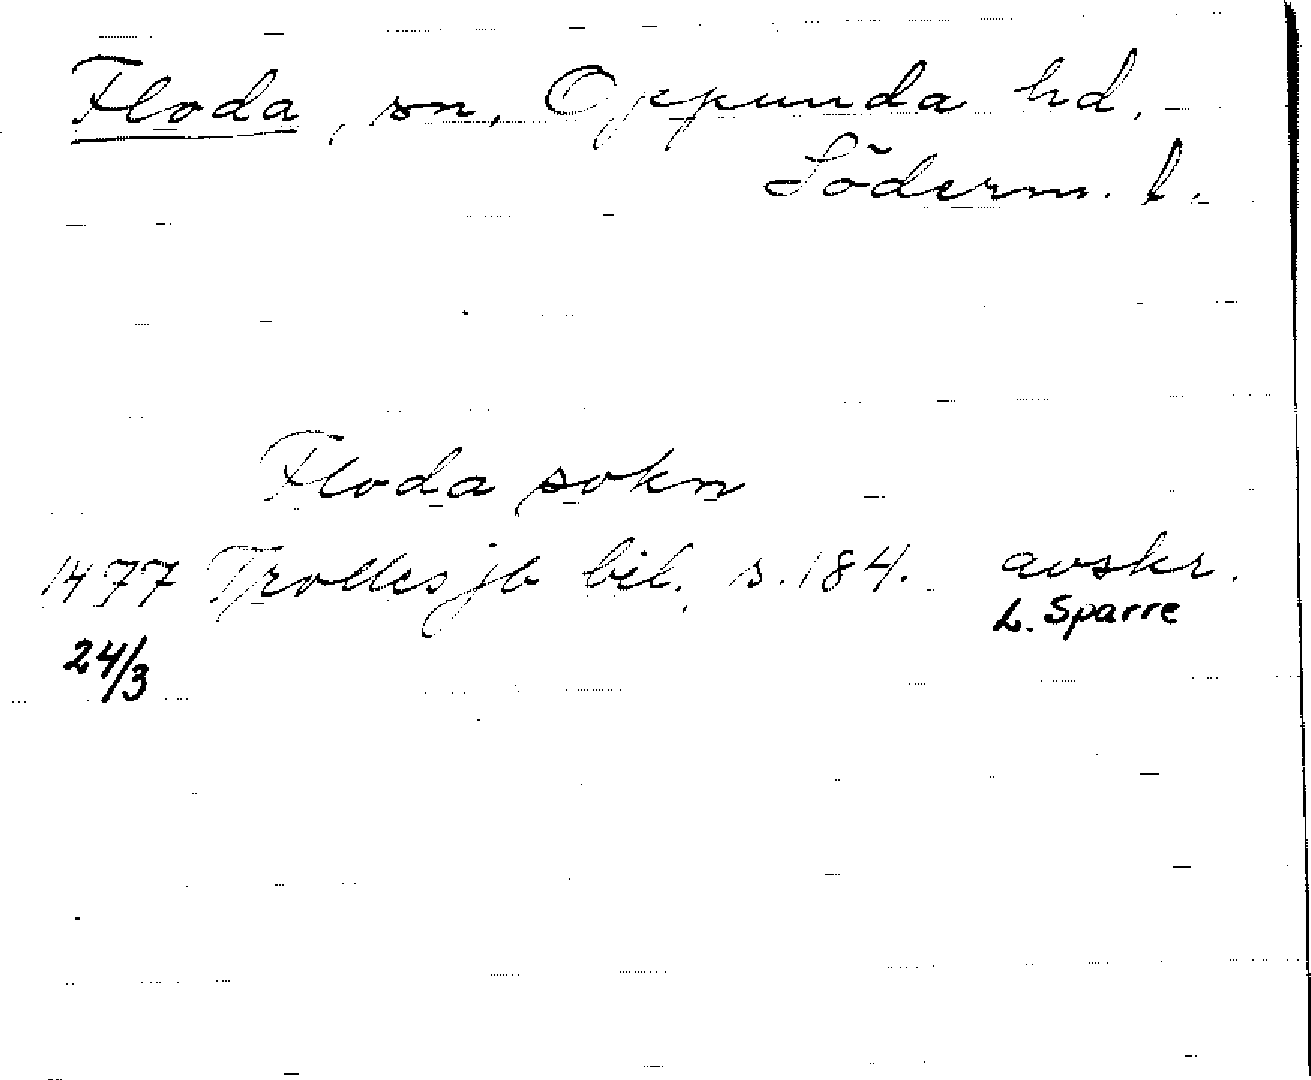 Floda, sn, Oppunda hd,
Söderm. l.
Floda sokn
1477 Trolles jb bil. s. 184. avskr.
L. Sparre
24/3